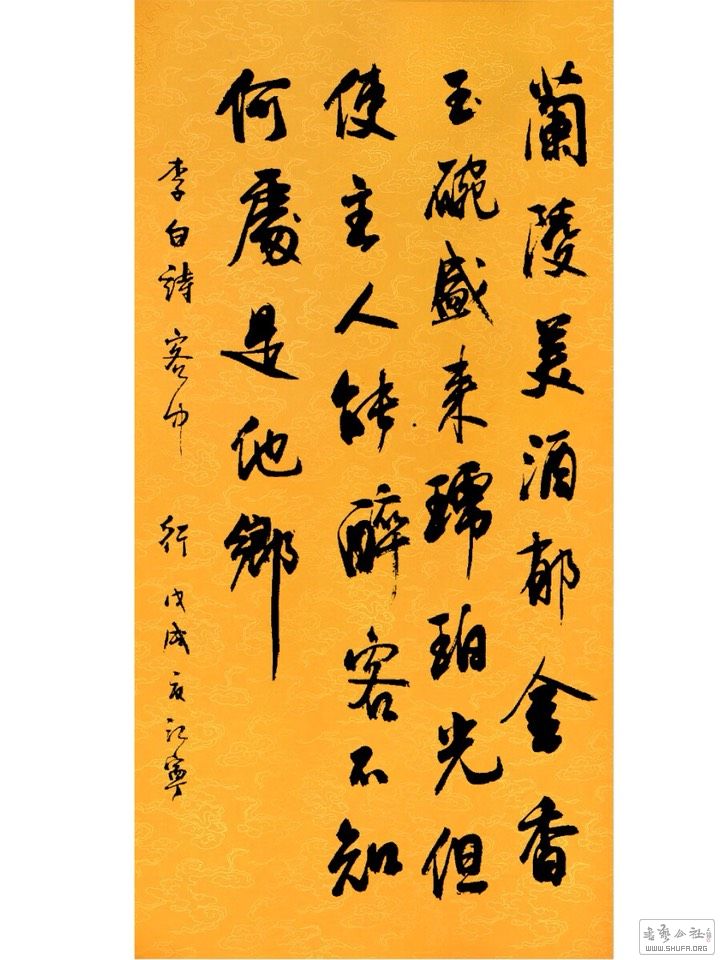 蘭陵美酒郁金香
玉碗盛来琥珀光但
使主人能醉客不知
何處是他鄉
李白詩 客中 行 戊戌夏江寧
书艺公社
WWW.SHUFA.ORG